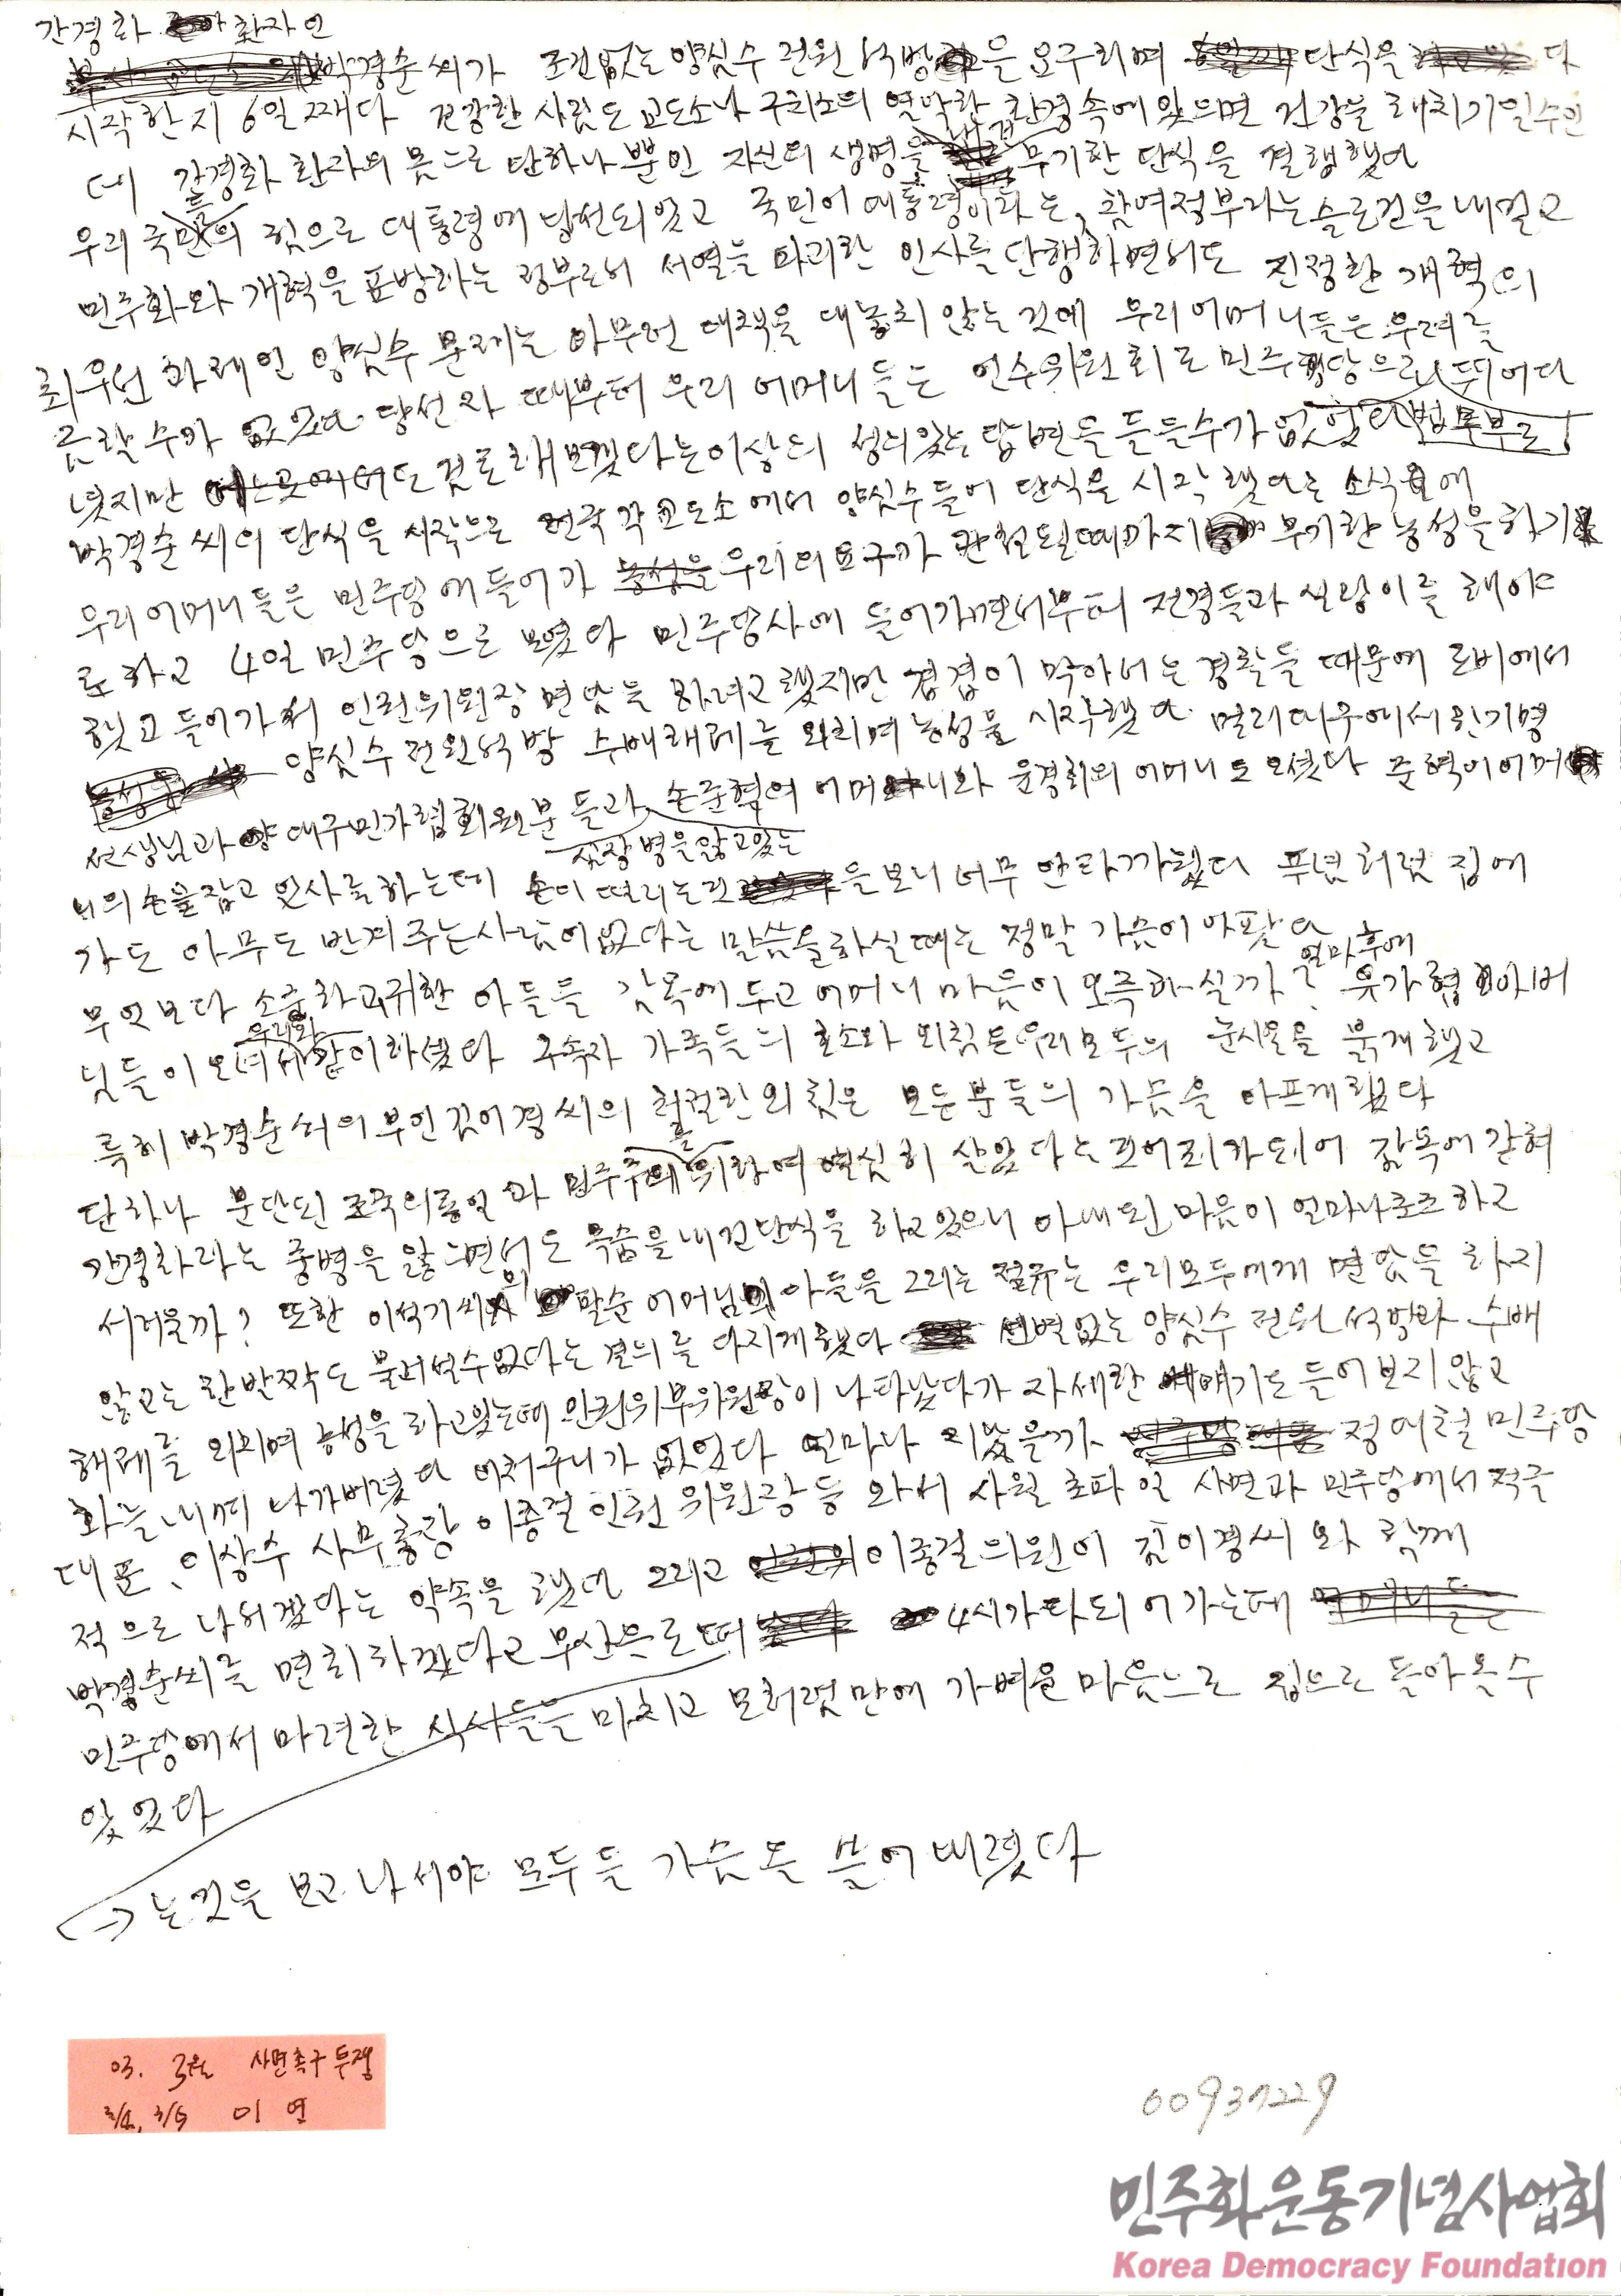 간경화 환자인
박경순씨가 조건없는 양심수 전원석방을 요구하며 단식을 다
시작한지 6일째다 건강한 사람도 교도소나 구치소의 열악한 환경속에 있으면 건강을 해치기 일수인
데 간경화 환자의 몸으로 단하나 뿐인 자신의 생명을 내걸고 무기한 단식을 결행했다
우리 국민들의 힘으로 대통령에 당선되었고 국민이 대통령이라는, 참여정부라는 슬로건을 내걸고
민주화와 개혁을 표방하는 정부로서 서열을 파괴한 인사를 단행하면서도 진정한 개혁의
최우선 과제인 양심수 문제는 아무런 대책을 내놓치 않는 것에 우리 어머니들은 우려를
금할수가 없었다 당선자 때부터 우리 어머니들은 인수위원회로 민주당으로 법무부로 뛰어다
녔지만 검토해보겠다는 이상의 성의있는 답변을 들을수가 없었다
박경순씨의 단식을 시작으로 전국 각 교도소에서 양심수들이 단식을 시작했다는 소식에
우리 어머니들은 민주당에 들어가 우리의 요구가 관철될때까지 무기한 농성을 하기
로 하고 4일 민주당으로 모였다 민주당사에 들어가면서부터 전경들과 실랑이를 해야
했고 들어가서 인권위원장 면담을 하려고 했지만 겹겹이 막아서는 경찰들 때문에 로비에서
양심수 전원석방 수배해제를 외치며 농성을 시작했다 멀리 대구에서 한기명
선생님과 대구민가협회원분들과 손준혁의 어머니와 윤경회의 어머니도 오셨다 준혁이 어머
심장병을 앓고있는
니의 손을 잡고 인사를 하는데 손이 떨리는것을 보니 너무 안타까웠다 푸념처럼 집에
가도 아무도 반겨주는 사람이 없다는 말씀을 하실때는 정말 가슴이 아팠다
무엇보다 소중하고 귀한 아들을 감옥에 두고 어머니 마음이 오죽하실까? 얼마후에 유가협 아버
님들이 오셔서 우리와 같이하셨다 구속자 가족들의 호소와 외침은 우리 모두의 눈시울을 붉게 했고
특히 박경순씨의 부인 김이경씨의 처절한 외침은 모든분들의 가슴을 아프게 했다
단하나 분단된 조국의 통일과 민주주의를 위하여 열심히 살았다는 죄가되어 감옥에 갇혀
간경화라는 중병을 앓으면서도 목숨을 내건 단식을 하고있으니 아내된 마음이 얼마나 초조하고
서러울까? 또한 이석기씨의 말순 어머님의 아들을 그리는 절규는 우리모두에게 면담을 하지
않고는 한발짝도 물러설수없다는 결의를 다지게 했다 선별없는 양심수 전원석방과 수배
해제를 외치며 농성을 하고있는데 인권위부위원장이 나타났다가 자세한 얘기도 들어보지 않고
화를 내며 나가버렸다 어처구니가 없었다 얼마나 지났을까 정대철 민주당
대표, 이상수 사무총장 이종걸 인권위원장 등 와서 사월 초파일 사면과 민주당에서 적극
적으로 나서겠다는 약속을 했다 그리고 이종걸의원이 김이경씨와 함께
박경순씨를 면회하겠다고 부산으로 떠 4시가 다되어가는데
민주당에서 마련한 식사들을 마치고 모처럼만에 가벼운 마음으로 집으로 돌아올수
있었다
→ 는것을 보고 나서야 모두들 가슴을 쓸어내렸다
03. 3월 사면촉구 투쟁
3/4, 3/5 이 연
00937229
민주화운동기념사업회
Korea Democracy Foundation